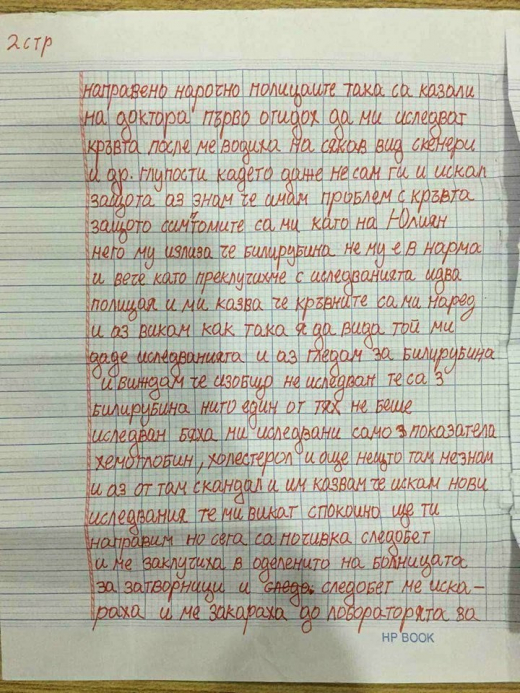 2 стр
направено нарочно полицаите така са казали
на доктора първо отидох да ми иследват
кръвта после ме водиха на сякав вид скенери
и др. глупости кадето даже не сам ги и искал
защота аз знам че имам проблем с кръвта
защото симтомите са ми като на Юлиян
него му излиза че билирубина не му е в нарма
и вече като преключихме с иследванията идва
полицая и ми казва че кръвните са ми наред
и аз викам как така я да вида той ми
даде иследванията и аз гледам за билирубина
и виждам че изобщо не иследван те са 3
билирубина нито един от тях не беше
иследван бяха ми иследвани само 3 показатела
хемоглобин, холестерол и още нещто там незнам
и аз от там скандал и им казвам че искам нови
иследвания те ми викат спокоино ще ти
направим но сега са почивка следобет
и ме заключиха в оделението на болницата
за затворници и следобет ме иска-
раха и ме закараха до лобораторята за
HP BOOK